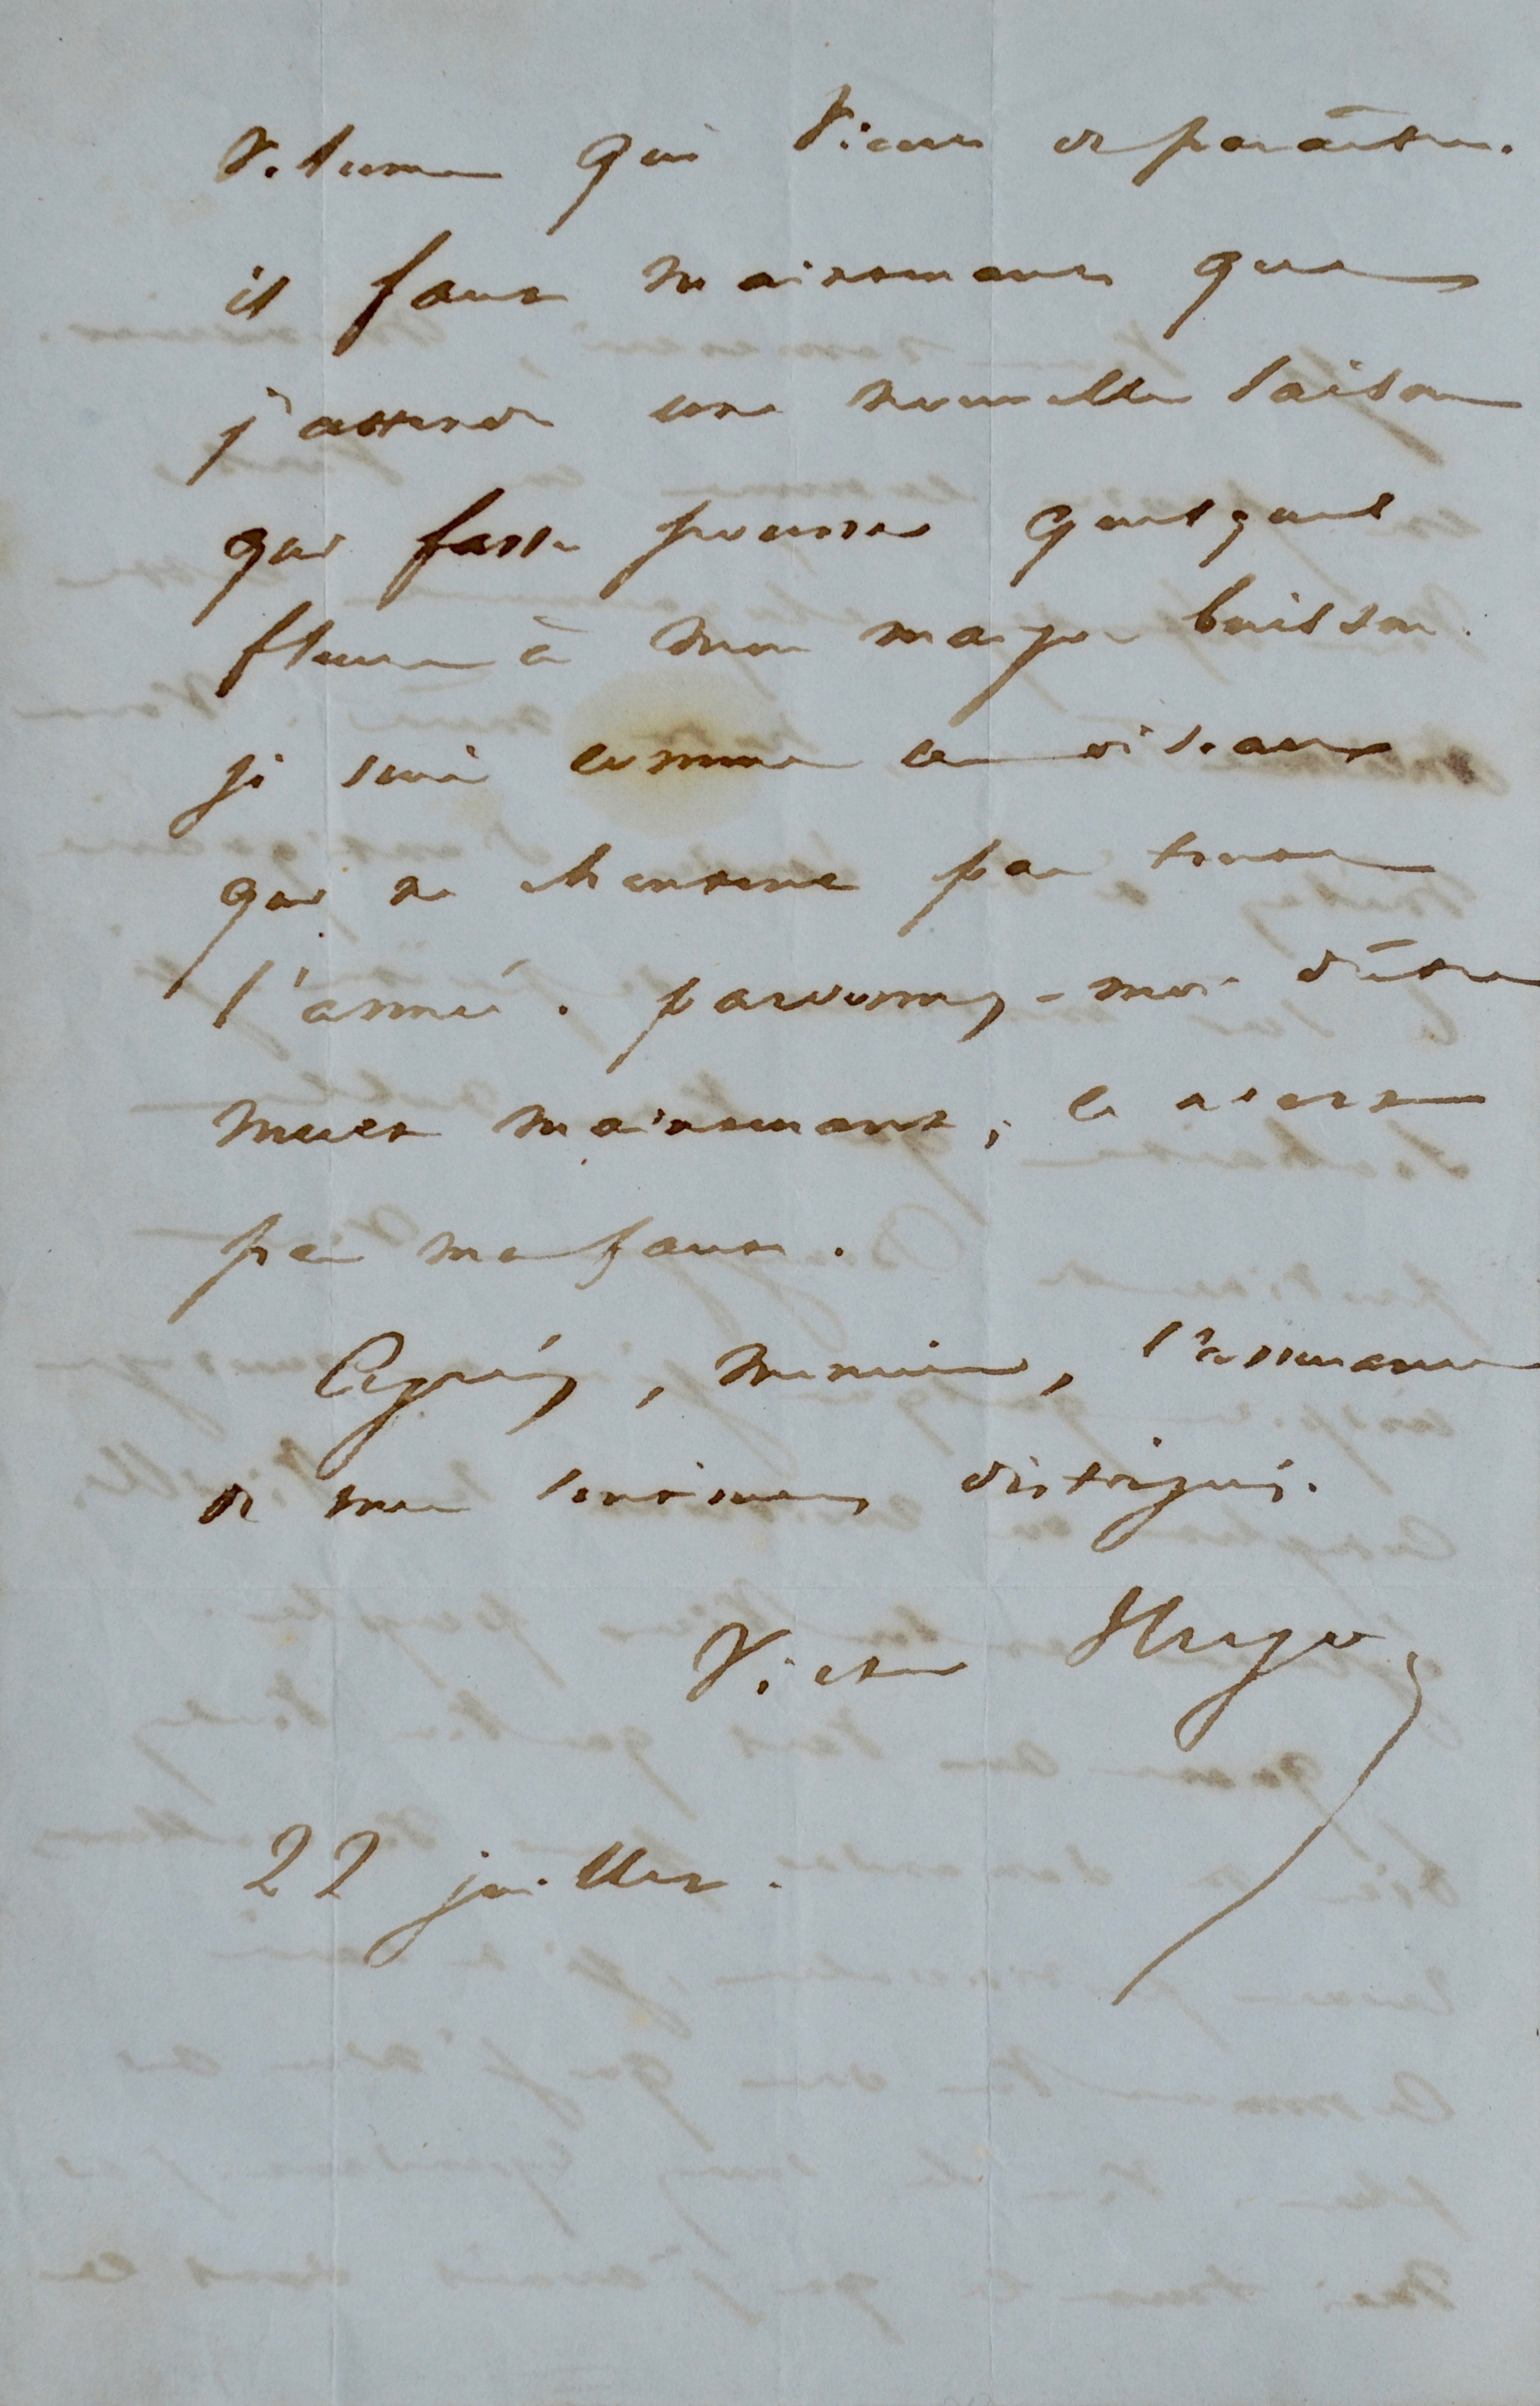 volume qui vient de paraître.
il faut maintenant que
j'attende une nouvelle saison
qui fasse pousser quelques
fleurs à mon maigre buisson.
je suis comme les oiseaux
qui ne chantent pas toute
l'année. pardonnez-moi d'être
muet maintenant, ce n'est
pas ma faute.
Agréez, monsieur, l'assurance
de mes sentiments distingués.
Victor Hugo
22 juillet.